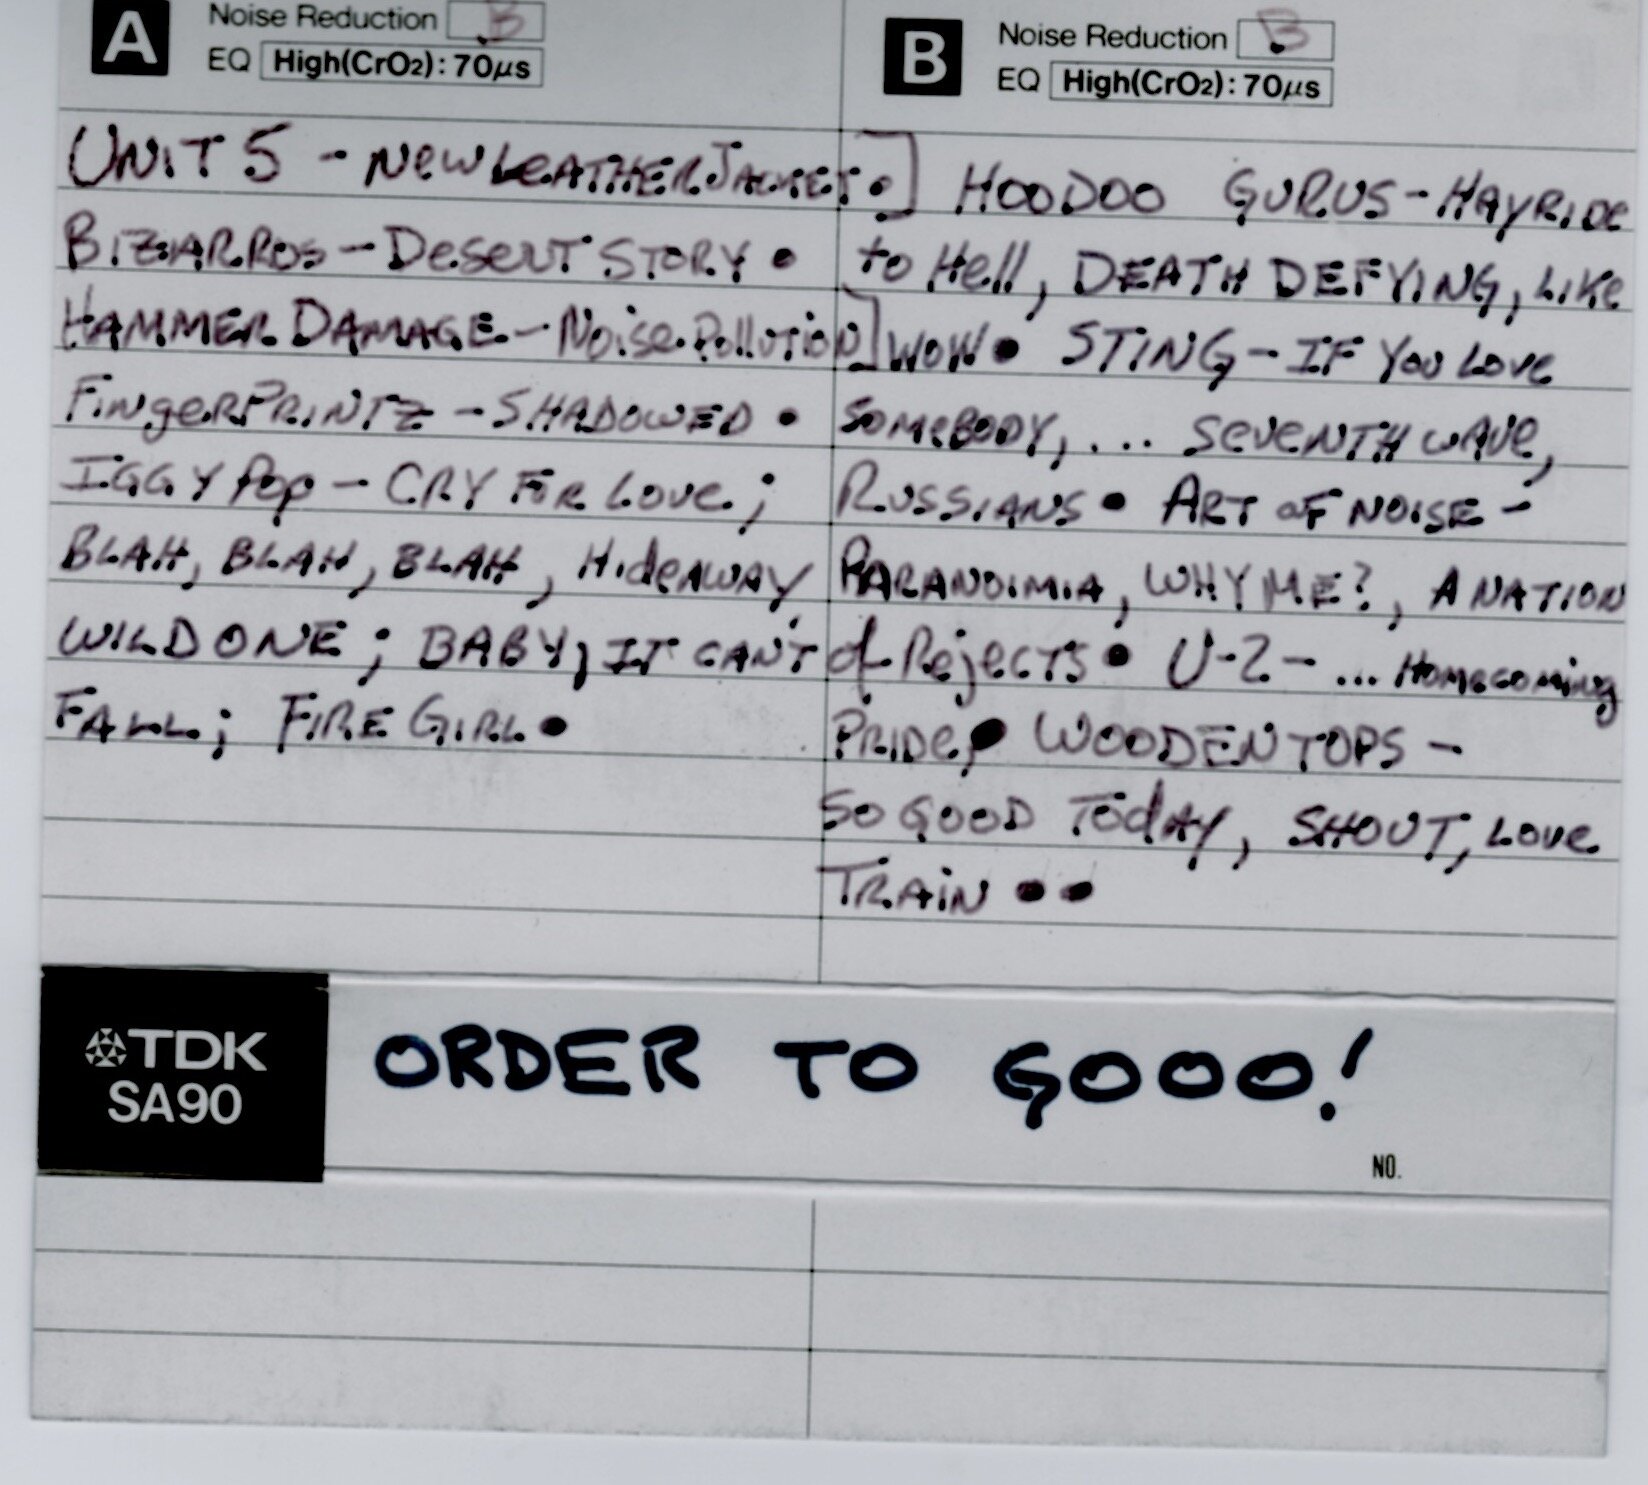 A Noise Reduction B
EQ High(CrO2): 70μs
UNIT 5 - New Leather Jacket •]
BIZARROS - Desert STORY •
HAMMER DAMAGE - Noise Pollution]
FingerPRINTZ - SHADOWED •
IGGY Pop - CRY FOR LOVE;
BLAH, BLAH, BLAH, HideAWAY,
WILD ONE; BABY, IT CAN'T
FALL; FIRE GIRL •
B Noise Reduction B
EQ High(CrO2): 70μs
HOODOO GURUS - HAYRIDE
to Hell, DEATH DEFYING, LIKE
WOW • STING - IF YOU LOVE
SOMEBODY, ... SEVENTH WAVE,
RUSSIANS • ART OF NOISE -
PARANOIMIA, WHY ME?, A NATION
of Rejects • U-2 - ... Homecoming
PRIDE, • WOODENTOPS -
SO GOOD TODAY, SHOUT, LOVE
TRAIN • •
TDK
SA90
ORDER TO GOOO!
NO.